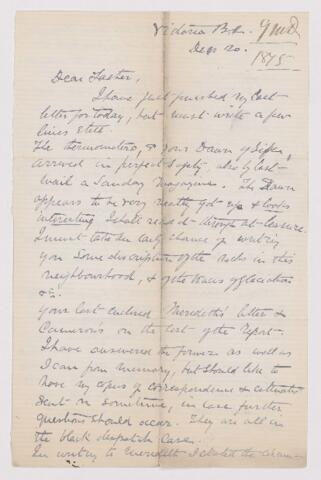 Victoria B.C. GMD
Dec 20. 1875
Dear Father,
I have just finished my last
letter for today, but must write a few
lines still.
The thermometers, & your Dawn of Life
arrived in perfect safety, also by last
mail a Sunday Magazine. The Dawn
appears to be very neatly got up & looks
interesting I shall read it through at leisure.
I must take an early chance of writing
you some description of the rocks in this
neighbourhood, & of the traces of glaciation
&c.
Your last enclosed Meredith's letter &
Cameron's on the text of the Report.
I have answered the former as well as
I can from memory, but should like to
have my copies of correspondence & estimates
sent on sometime, in case further
questions should occur. They are all in
the black despatch case.
In writing to Meredith I stated the